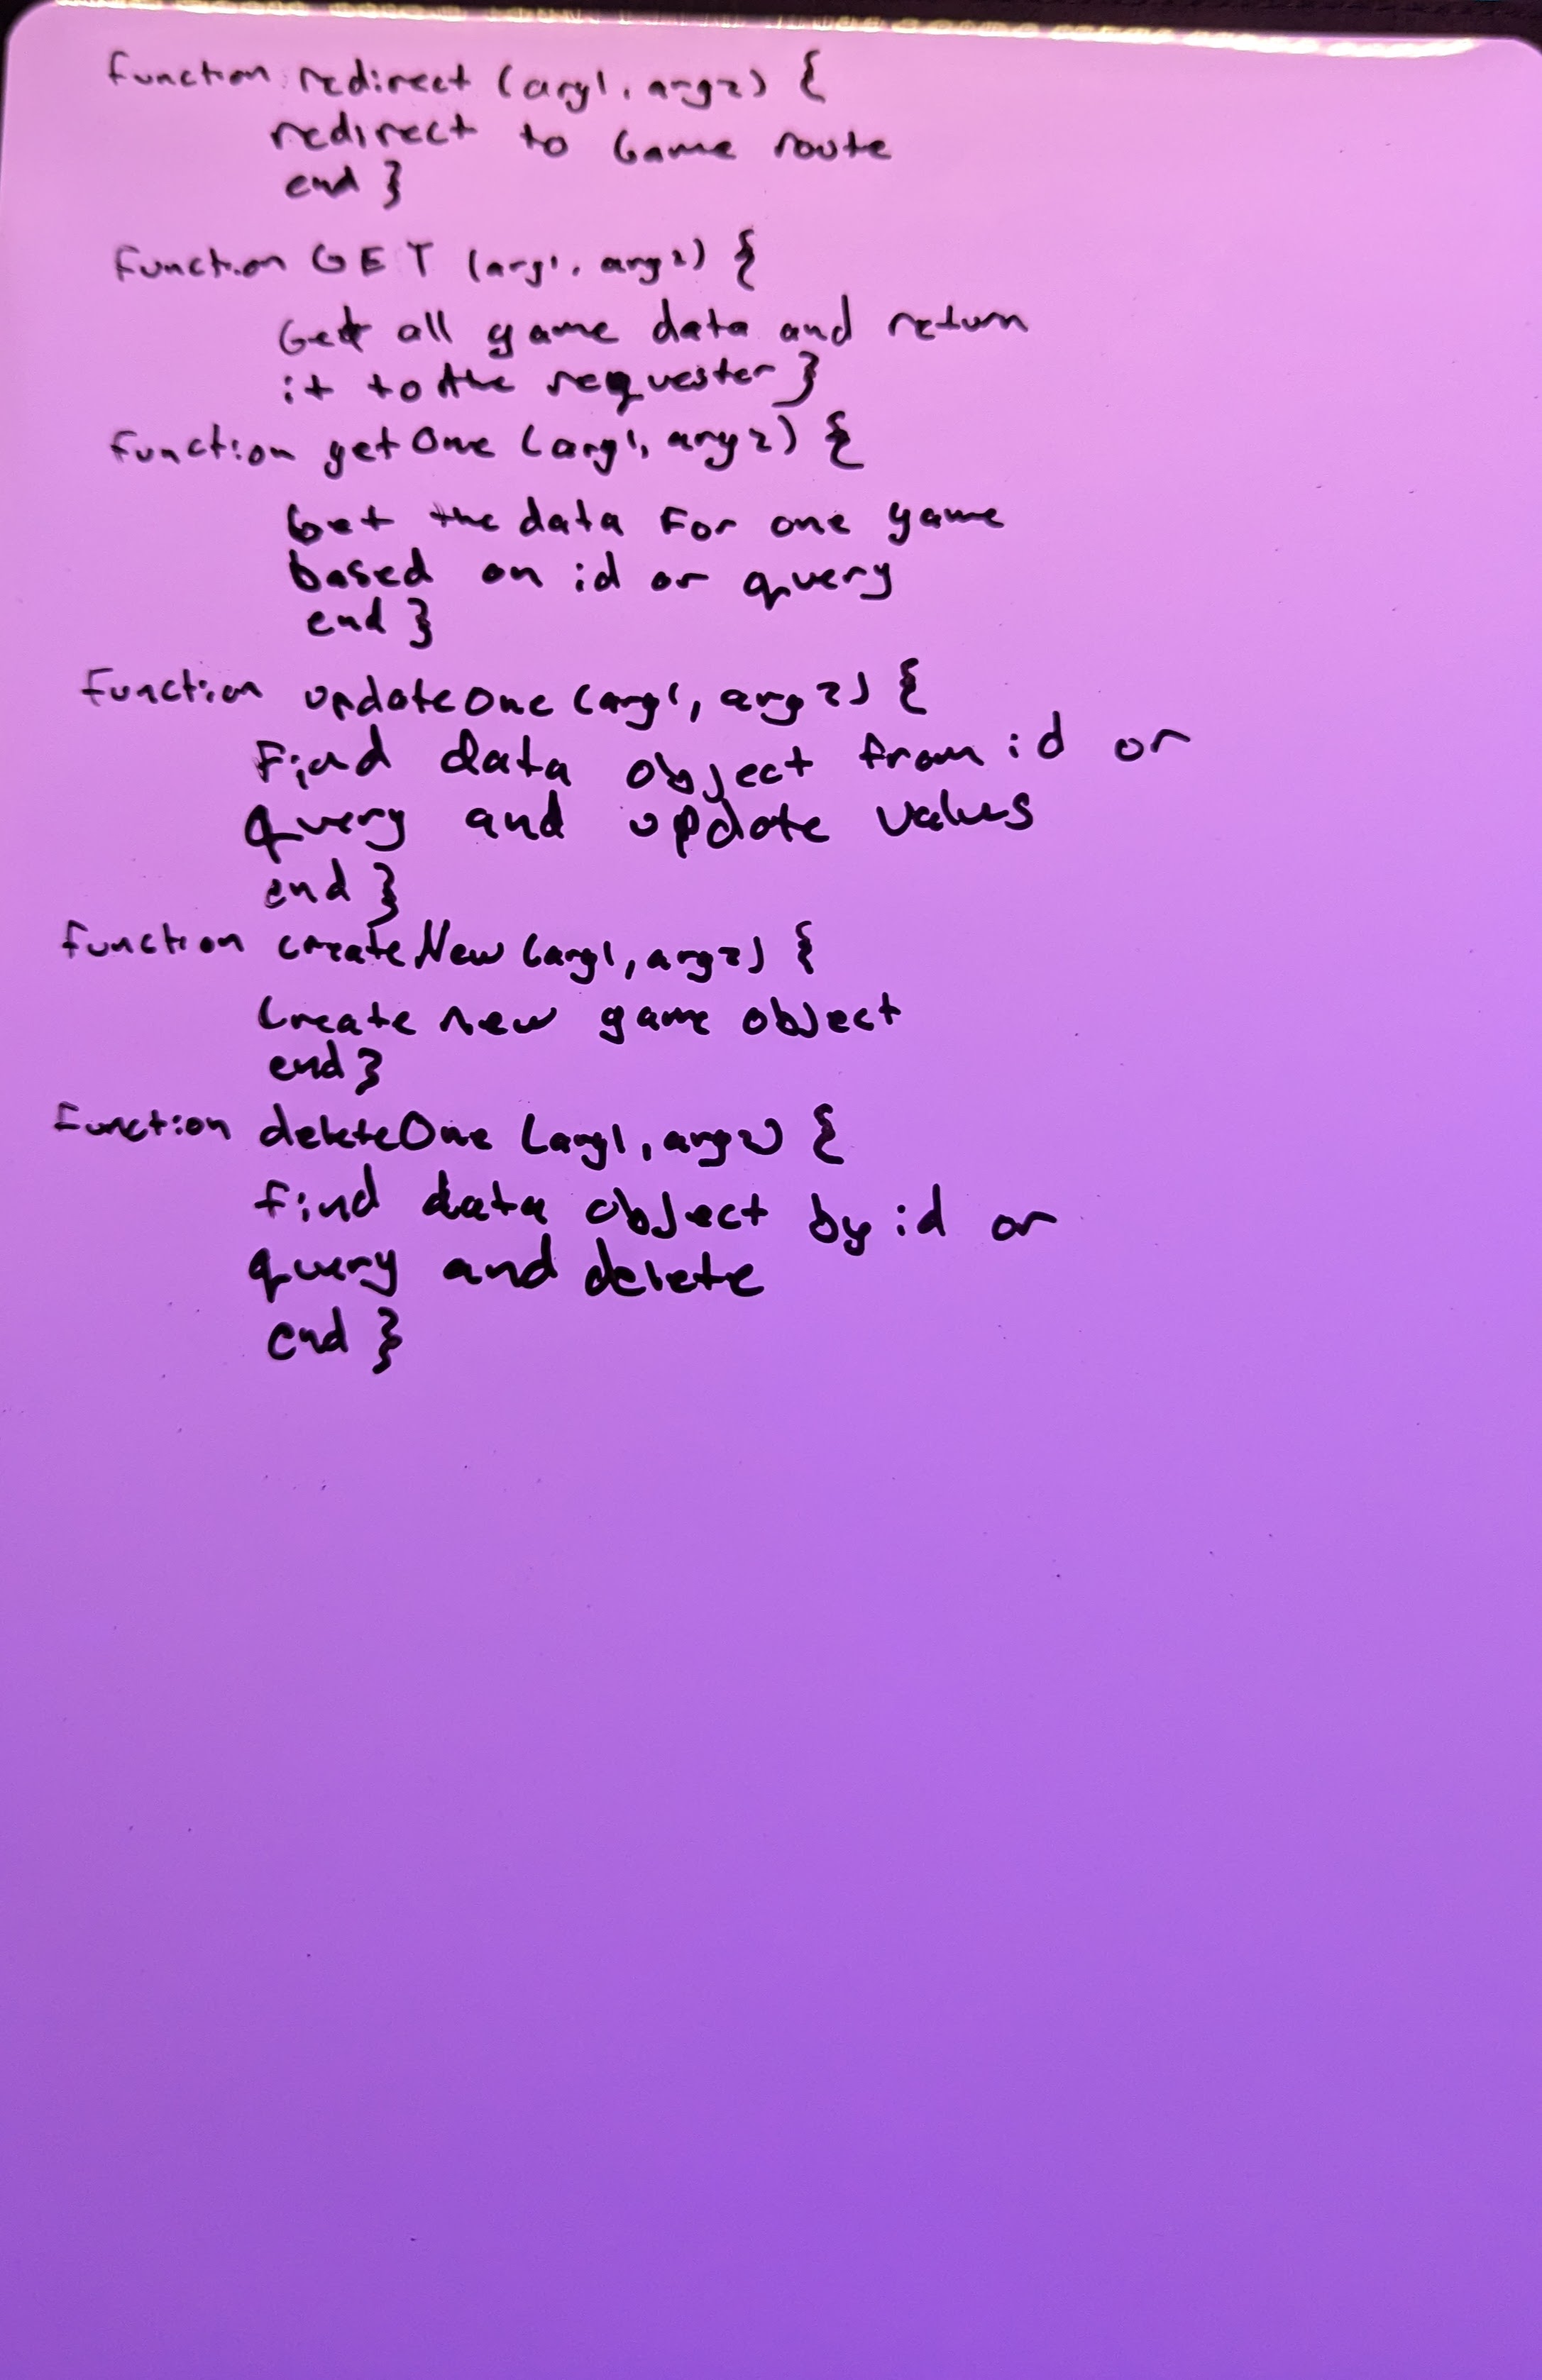 function redirect (arg1, arg2) {
redirect to Game route
end }
function GET (arg1, arg2) {
Get all game data and return
it to the requester }
function getOne (arg1, arg2) {
Get the data for one game
based on id or query
end }
function updateOne (arg1, arg2) {
Find data object from id or
query and update values
end }
function createNew (arg1, arg2) {
Create new game object
end }
function deleteOne (arg1, arg2) {
find data object by id or
query and delete
end }